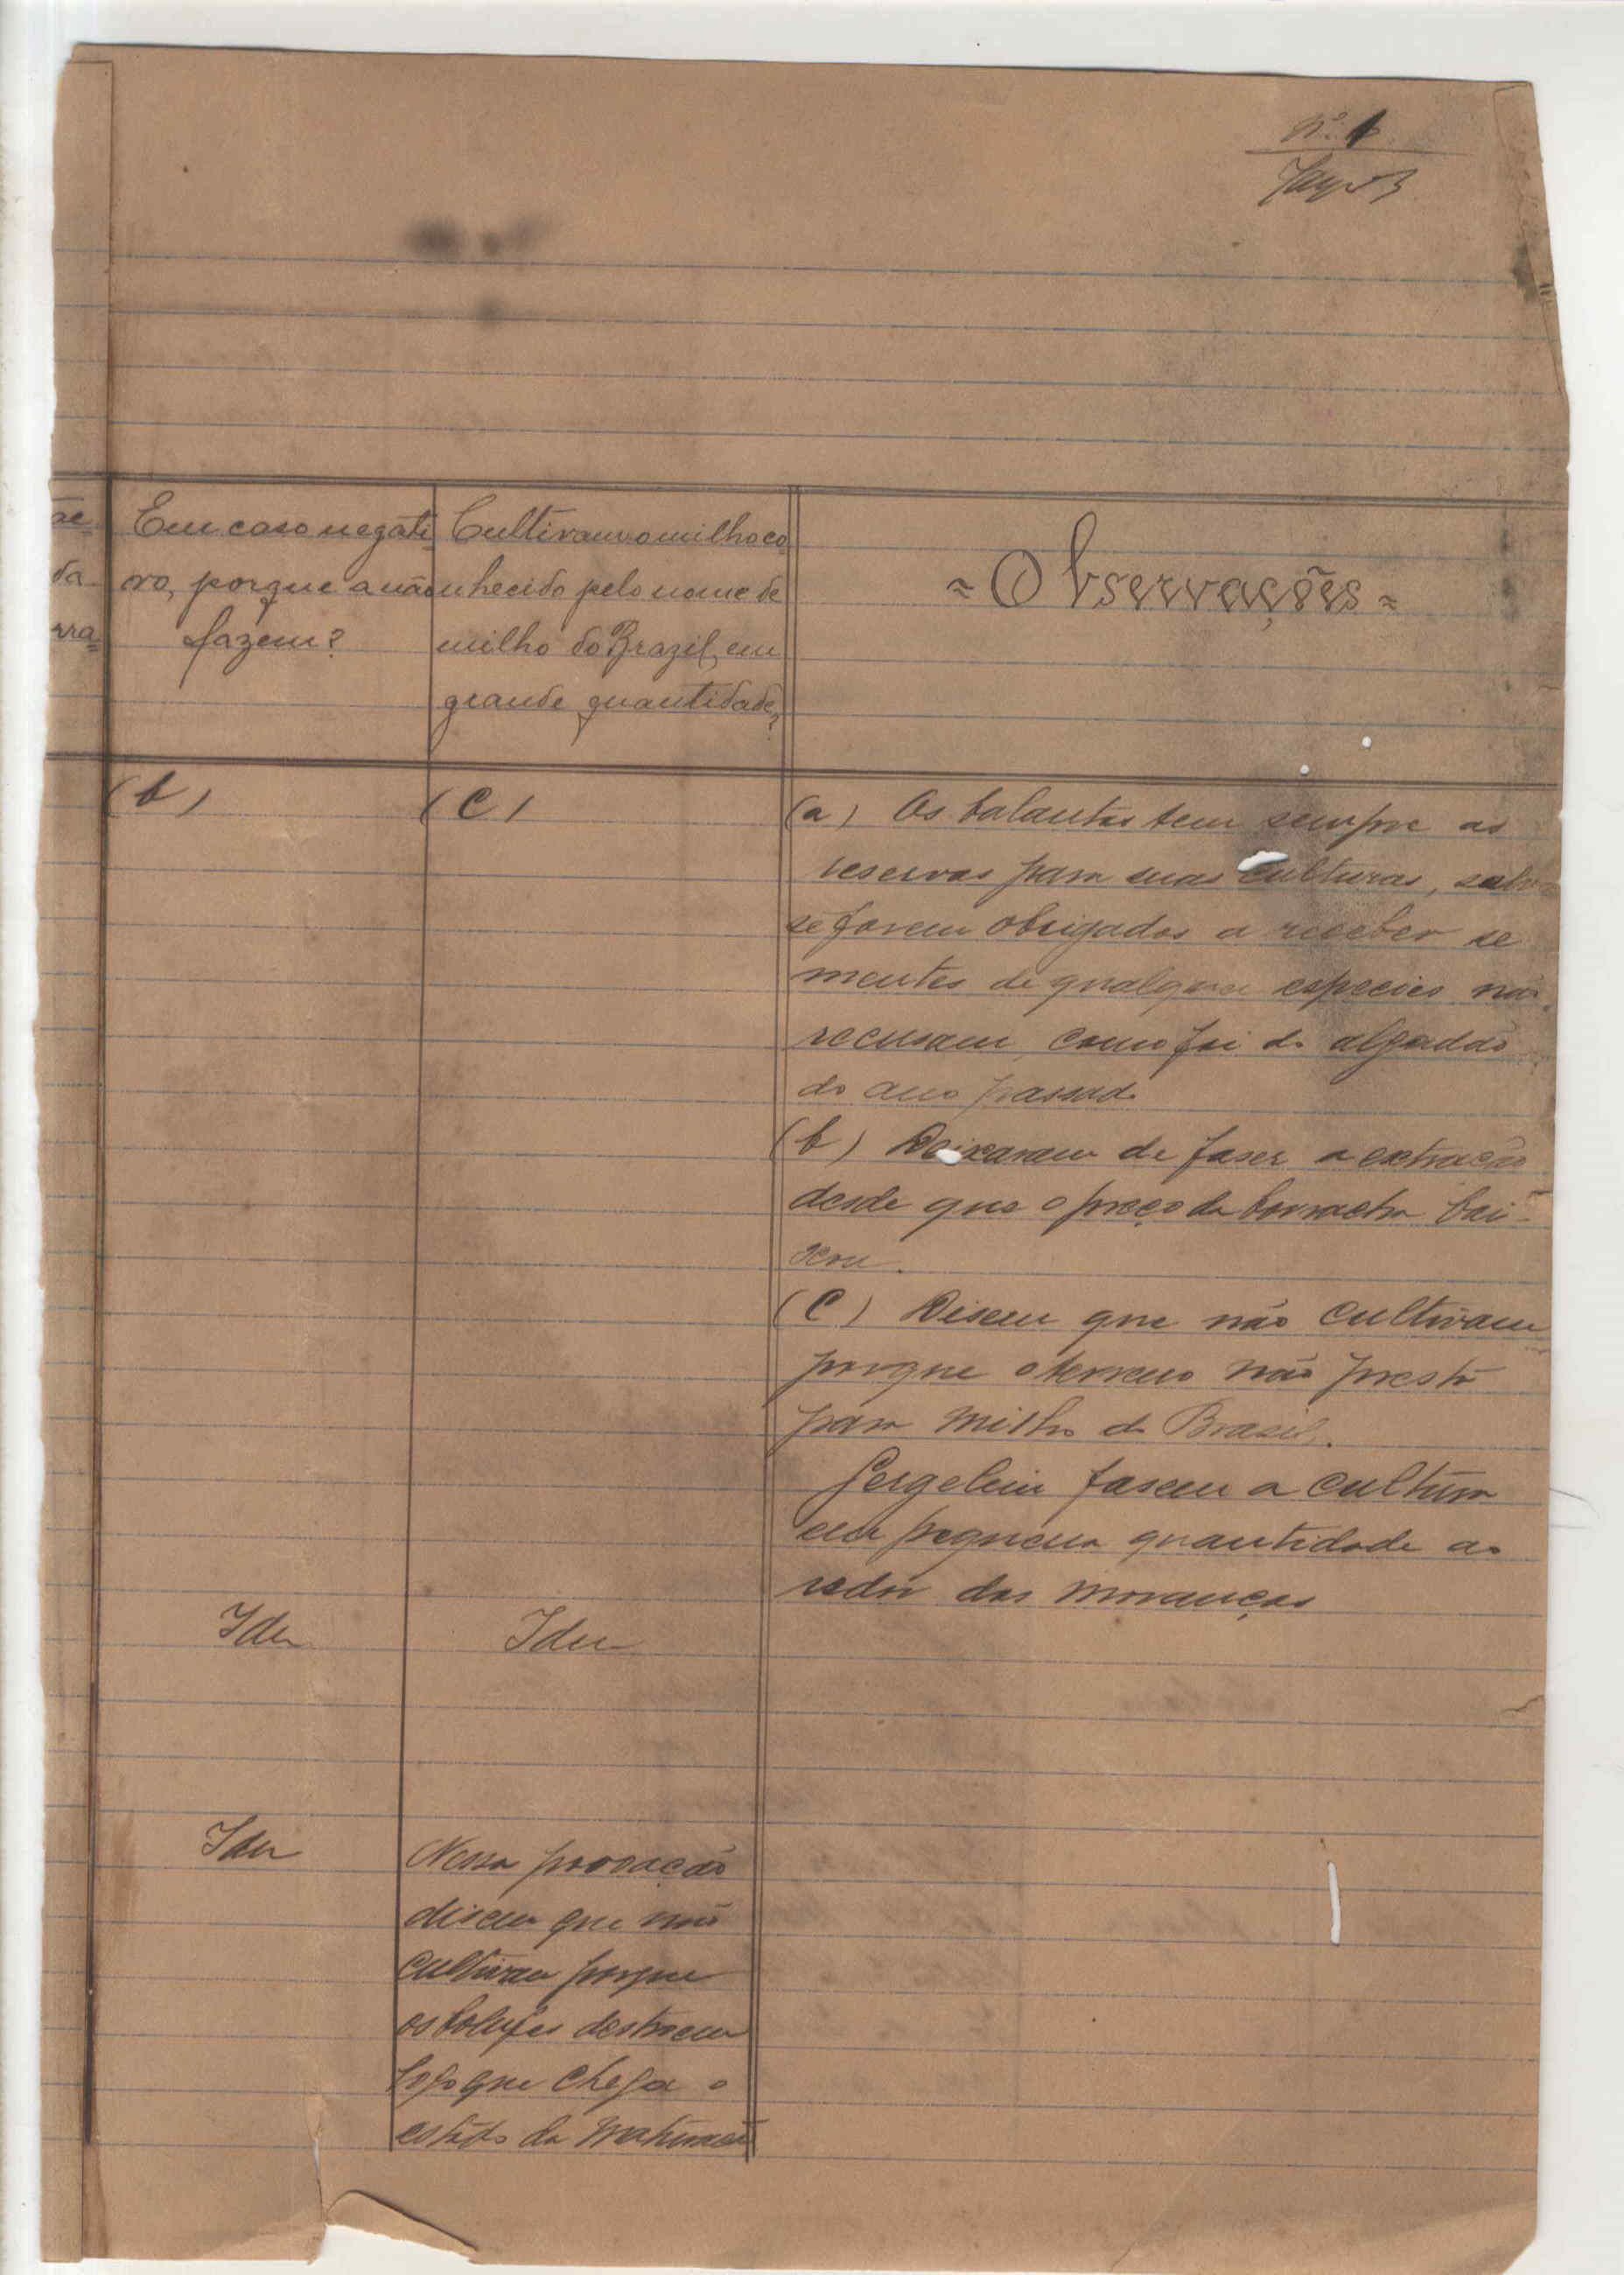 Nº 1
ae-
da
rra=
Em caso negati-
vo, porque a não
fazem?
Cultivam o milho co-
nhecido pelo nome de
milho do Brazil, em
grande quantidade?
= Observações =
(b)
(C)
(a) Os balantas tem sempre as
reservas para suas culturas, salvo
se forem obrigados a receber se
mentes de qualquer especies não
recusam, como foi do algodão
do ano passado
(b) Deixaram de faser a extração
desde que o preço da borracha bai-
xou.
(C) Disem que não cultivam
porque o terreno não presta
para milho do Brasil.
Gergelim fasem a cultura
em pequena quantidade ao
redor das moranças
Idem
Idem
Idem
Nessa povoação
disem que não
cultivam porque
os destroem
logo que chega o
estado da maturação